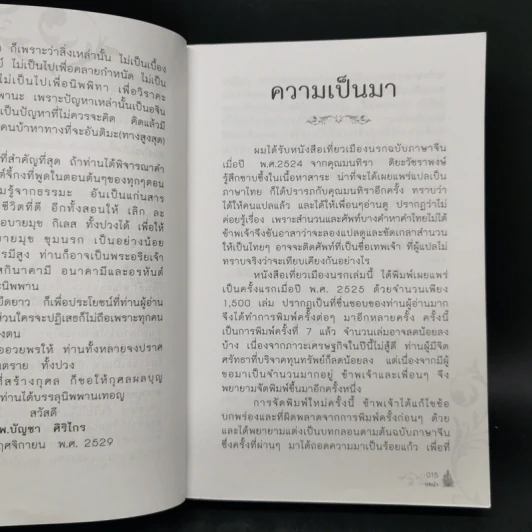 ก็เพราะว่าสิ่งเหล่านั้น ไม่เป็นเบื้อง
ไม่เป็นไปเพื่อคลายกำหนัด ไม่เป็น
ไม่เป็นไปเพื่อนิพพิทา เพื่อวิราคะ
พานะ เพราะปัญหาเหล่านั้นเป็นอจิน
เป็นปัญหาที่ไม่ควรจะคิด คิดแล้วมี
คนบ้าหาทางที่จะอันติมะ(ทางสูงสุด)
ที่สำคัญที่สุด ถ้าท่านได้พิจารณาคำ
ต์จี้กงที่พูดในตอนต้นๆของทุกๆตอน
มรู้จากธรรมะ อันเป็นแก่นสาร
ชีวิตที่ดี อีกทั้งสอนให้ เลิก ละ
อบายมุข กิเลส ทั้งปวงได้ เพื่อให้
บายมุข ขุมนรก เป็นอย่างน้อย
รมีสูง ท่านก็อาจเป็นพระอริยเจ้า
สกิทาคามี อนาคามีและอรหันต์
นิพพาน
ยืดยาว ก็เพื่อประโยชน์ที่ท่านผู้อ่าน
ส่วนใครจะปฏิเสธก็ไม่ถือเพราะทุกคน
งตน
ออวยพรให้ ท่านทั้งหลายจงปราศ
นตราย ทั้งปวง
ที่สร้างกุศล ก็ขอให้กุศลผลบุญ
ท่านได้บรรลุนิพพานเทอญ
สวัสดี
พ.บัญชา ศิริไกร
พฤศจิกายน พ.ศ. 2529
ความเป็นมา
ผมได้รับหนังสือเที่ยวเมืองนรกฉบับภาษาจีน
เมื่อปี พ.ศ.2524 จากคุณมนทิรา ติยะวัชราพงษ์
รู้สึกซาบซึ้งในเนื้อหาสาระ น่าที่จะได้เผยแพร่แปลเป็น
ภาษาไทย ก็ได้ปรารภกับคุณมนทิราอีกครั้ง ทราบว่า
ได้ให้คนแปลแล้ว และได้ให้เพื่อนๆอ่านดู ปรากฏว่าไม่
ค่อยรู้เรื่อง เพราะสำนวนและศัพท์บางคำหาคำไทยไม่ได้
ข้าพเจ้าจึงขันอาสาว่าจะลองแปลดูและขัดเกลาสำนวน
ให้เป็นไทยๆ อาจจะติดศัพท์ที่เป็นชื่อเทพเจ้า ที่ผู้แปลไม่
ทราบจริงว่าจะเทียบเคียงกันอย่างไร
หนังสือเที่ยวเมืองนรกเล่มนี้ ได้พิมพ์เผยแพร่
เป็นครั้งแรกเมื่อปี พ.ศ. 2525 ด้วยจำนวนเพียง
1,500 เล่ม ปรากฏเป็นที่ชื่นชอบของท่านผู้อ่านมาก
จึงได้ทำการพิมพ์ครั้งต่อๆ มาอีกหลายครั้ง ครั้งนี้
เป็นการพิมพ์ครั้งที่ 7 แล้ว จำนวนเล่มอาจลดน้อยลง
บ้าง เนื่องจากภาวะเศรษฐกิจในปีนี้ไม่สู้ดี ท่านผู้มีจิต
ศรัทธาที่บริจาคทุนทรัพย์ก็ลดน้อยลง แต่เนื่องจากมีผู้
ขอมาเป็นจำนวนมากอยู่ ข้าพเจ้าและเพื่อนๆ จึง
พยายามจัดพิมพ์ขึ้นมาอีกครั้งหนึ่ง
การจัดพิมพ์ใหม่ครั้งนี้ ข้าพเจ้าได้แก้ไขข้อ
บกพร่องและที่ผิดพลาดจากการพิมพ์ครั้งก่อนๆ ด้วย
และได้พยายามแต่งเป็นบทกลอนตามต้นฉบับภาษาจีน
ซึ่งครั้งที่ผ่านๆ มาได้ถอดความมาเป็นร้อยแก้ว เพื่อที่
015